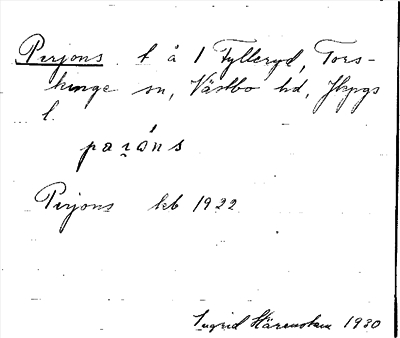 Perjons t å 1 Fylleryd, Tors-
kinge sn, Västbo hd, Jkpgs
l.
paráns
Pirjons kb 1922
Ingrid Härenstam 1930